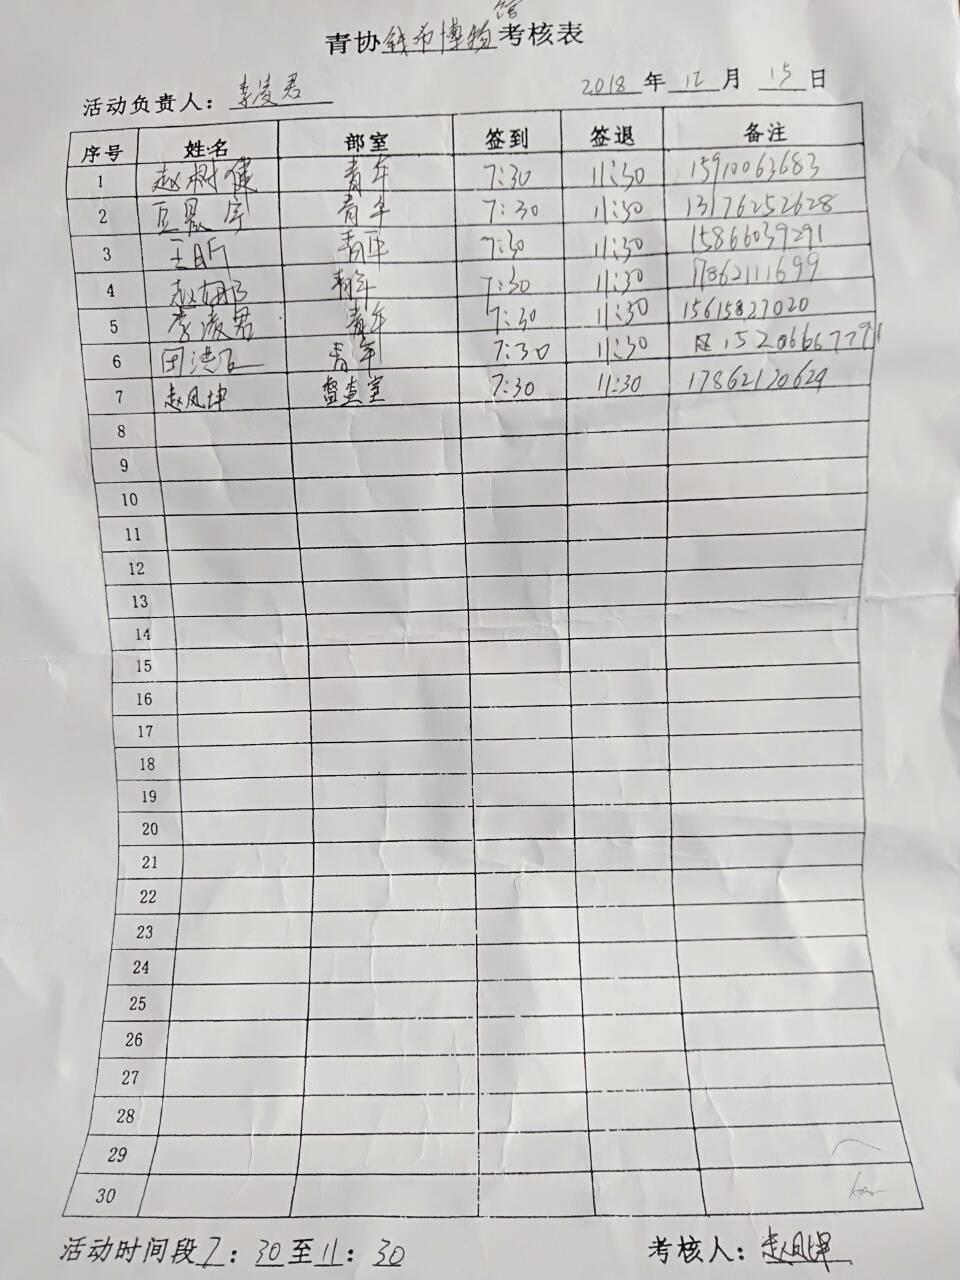 青协钱币博物馆考核表
活动负责人：李凌君 2018年12月15日
序号 姓名 部室 签到 签退 备注
1 赵树健 青年 7:30 11:30 15910063683
2 青年 7:30 11:30 13176252628
3 王昕 青年 7:30 11:30 15866039291
4 赵 青年 7:30 11:30 17862111699
5 李凌君 青年 7:30 11:30 15615827020
6 田 青年 7:30 11:30 15206667791
7 赵凤坤 督查室 7:30 11:30 17862120629
8
9
10
11
12
13
14
15
16
17
18
19
20
21
22
23
24
25
26
27
28
29
30
活动时间段7：30至11：30 考核人：赵凤坤